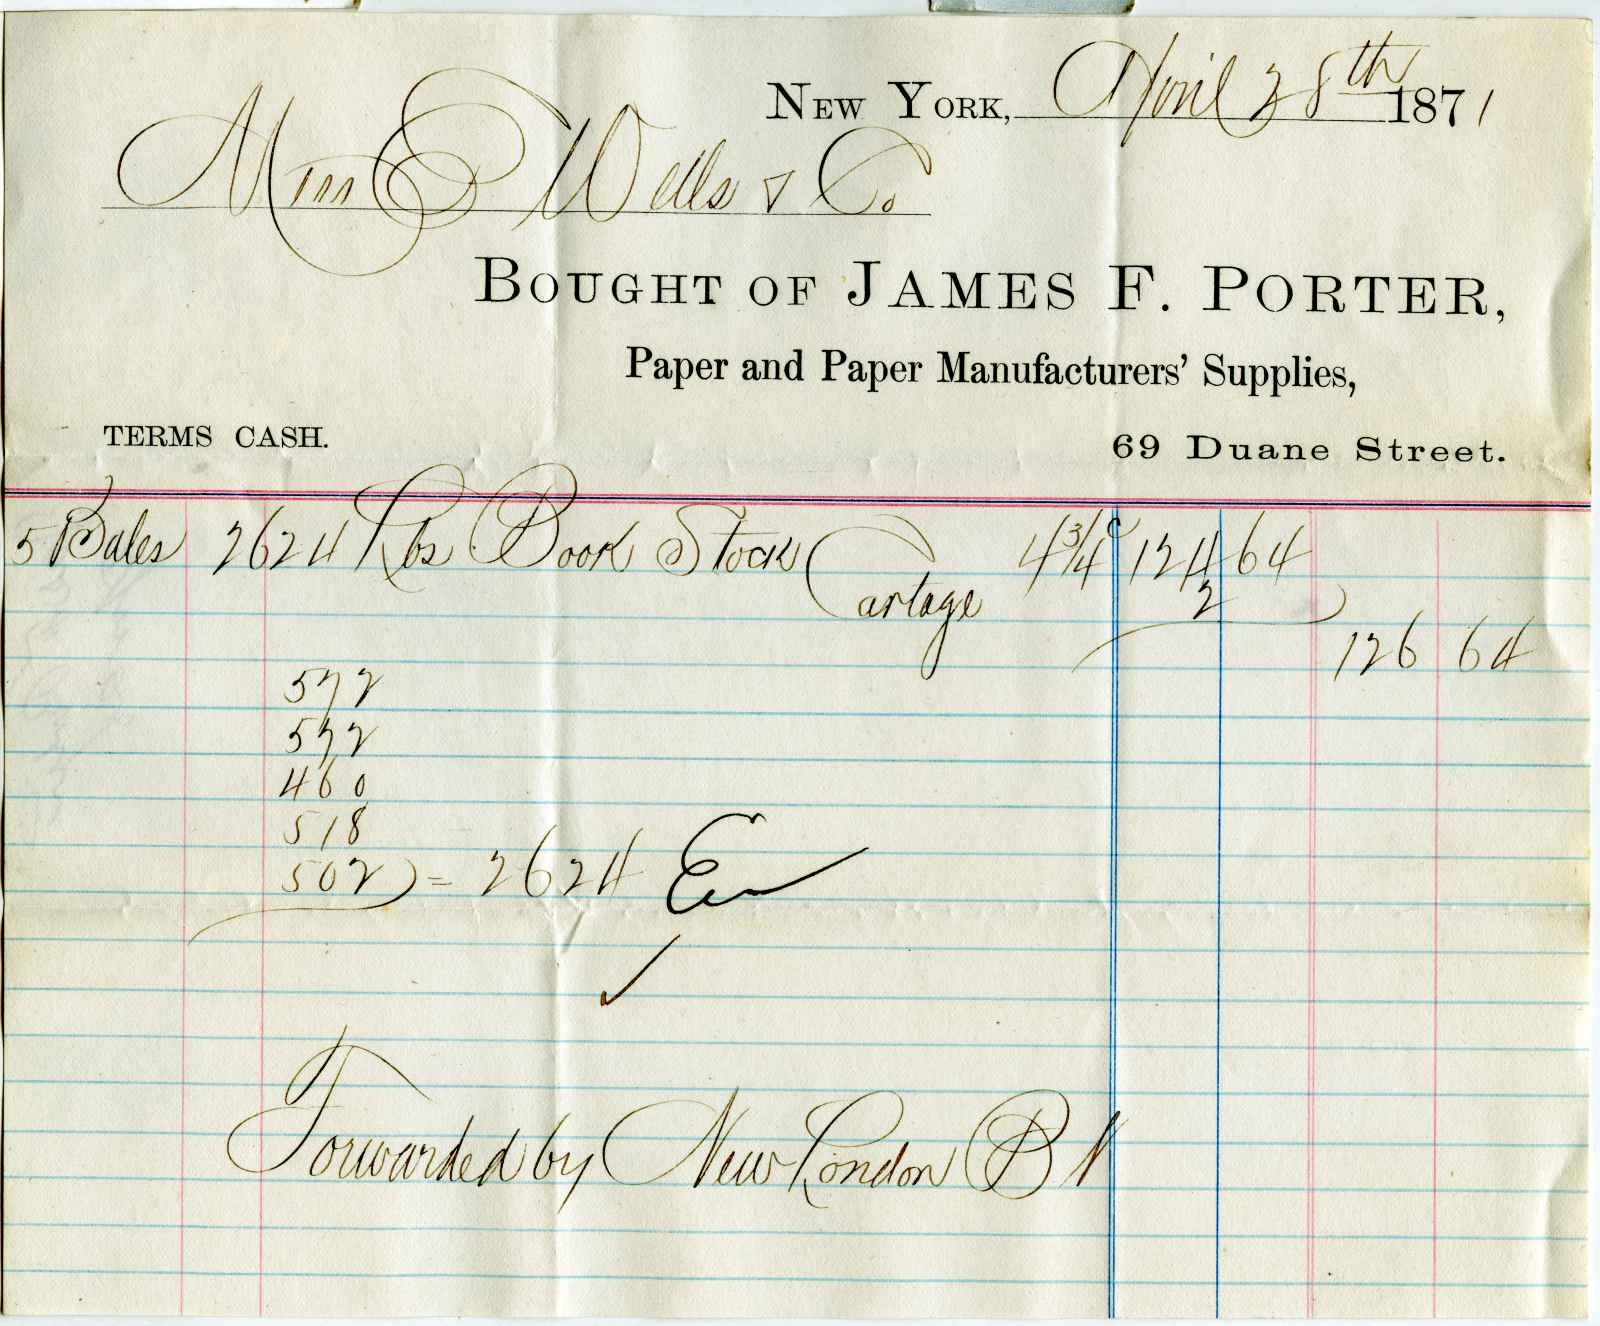 New York, April 28th 1871
Mess E Wells & Co
Bought of James F. Porter,
Paper and Paper Manufacturers' Supplies,
TERMS CASH. 69 Duane Street.
5 Bales 2624 Lbs Book Stock 4 3/4 c 124 64
Cartage 2
126 64
572
572
460
518
502 = 2624
Forwarded by New London B